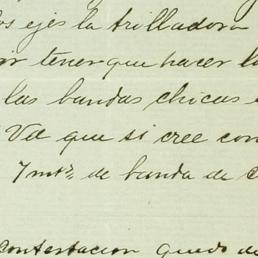 os ejes la trilladora
ir tener que hacer la
las bandas chicas
Vd que si cree con
7 mts de banda de c
contestacion quedo de